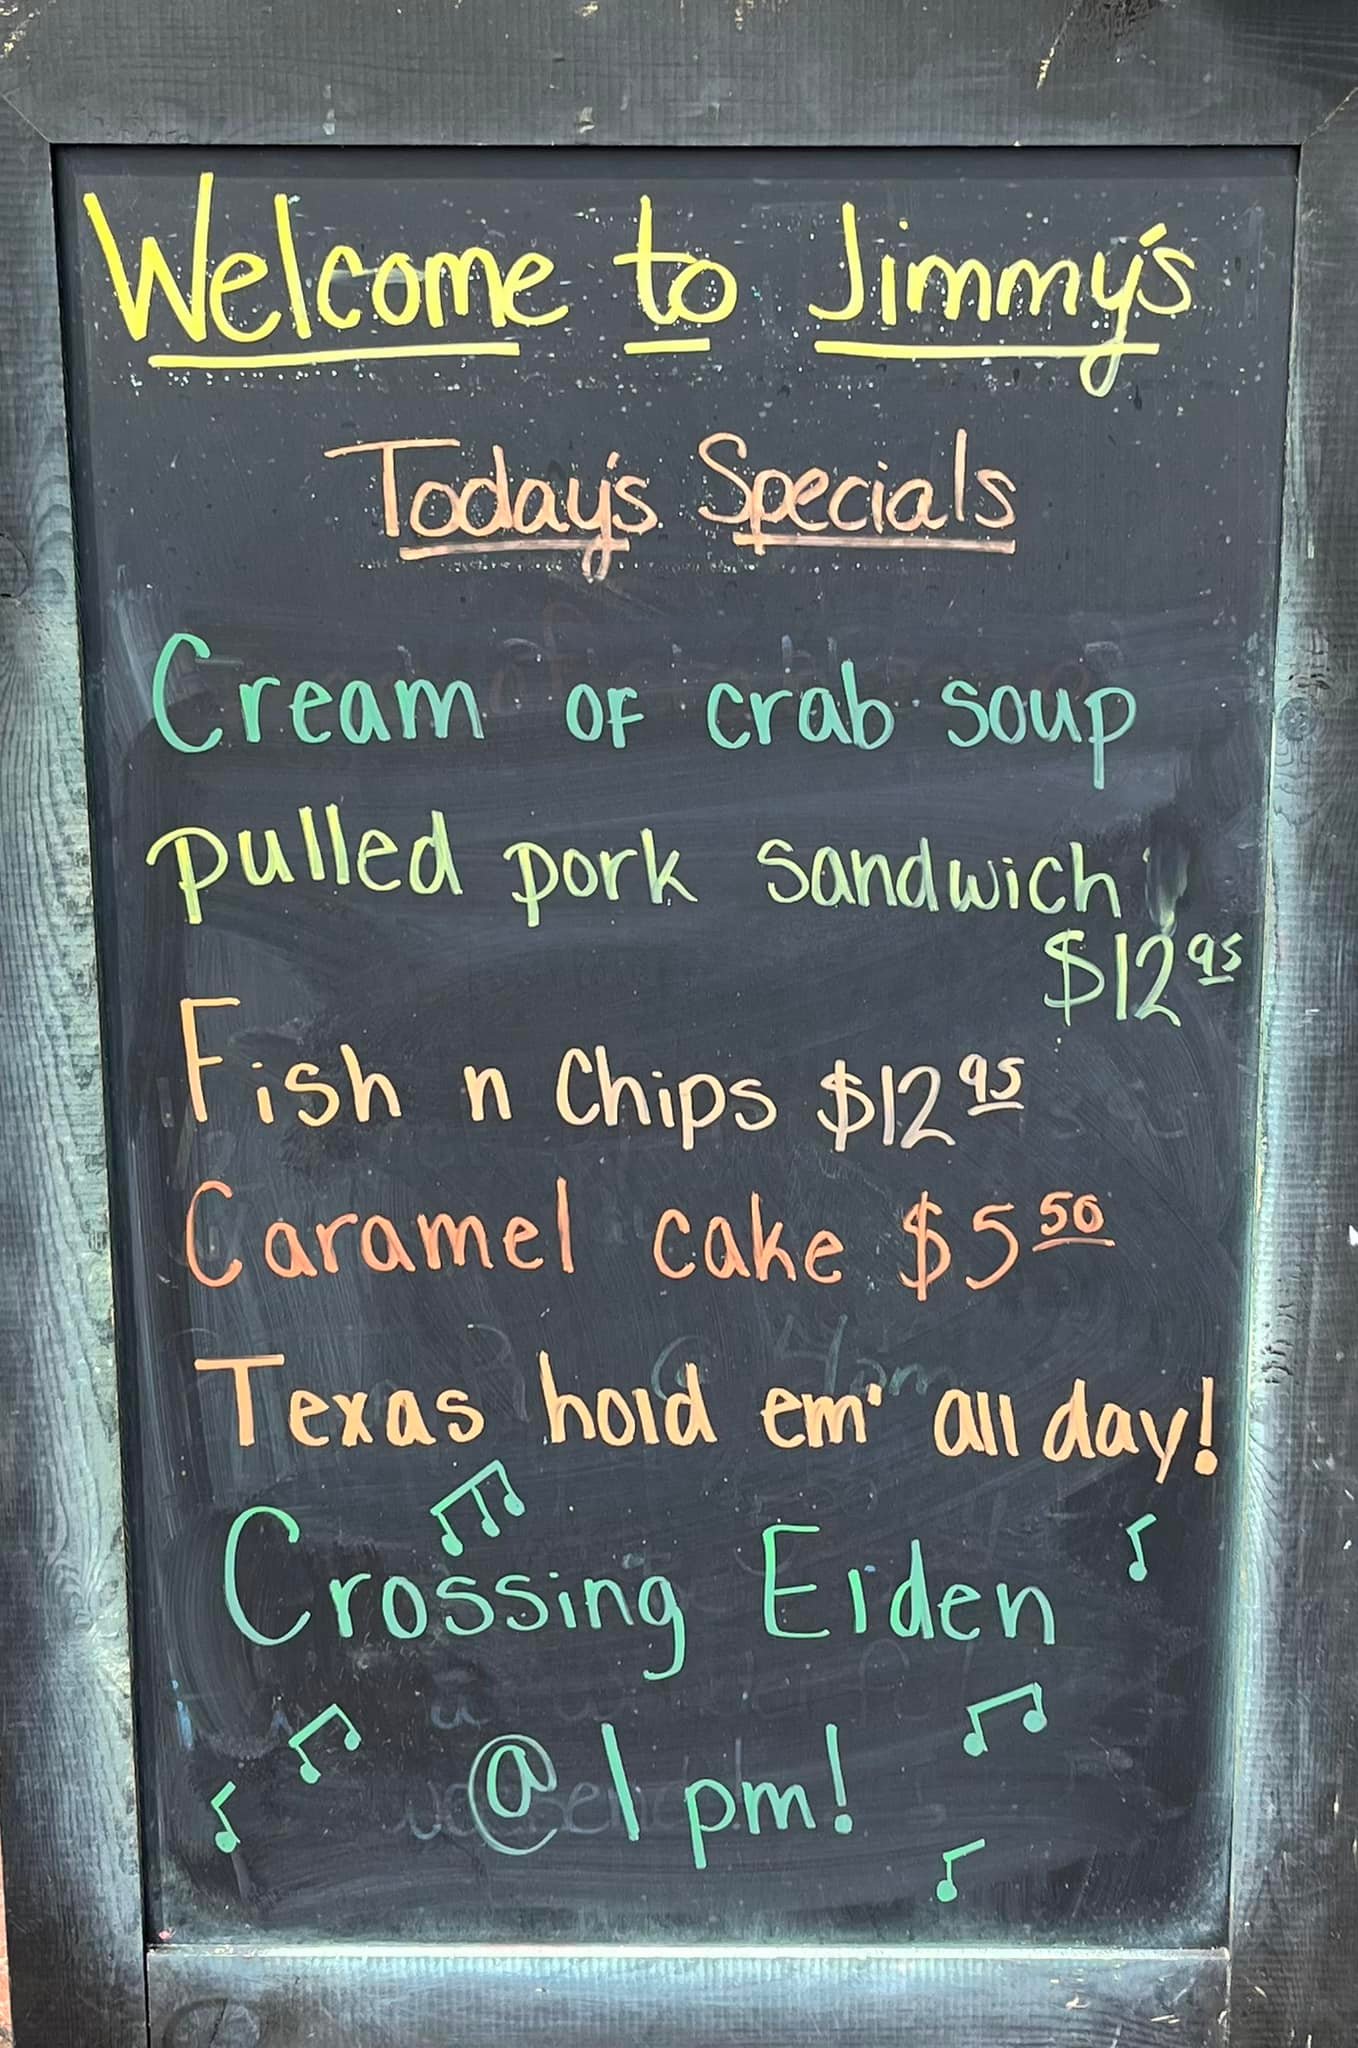 Welcome to Jimmy's
Today's Specials
Cream of crab soup
pulled pork sandwich
$12 95
Fish n Chips $12 95
Caramel cake $5 50
Texas hold em' all day!
Crossing Eiden
@ 1 pm!